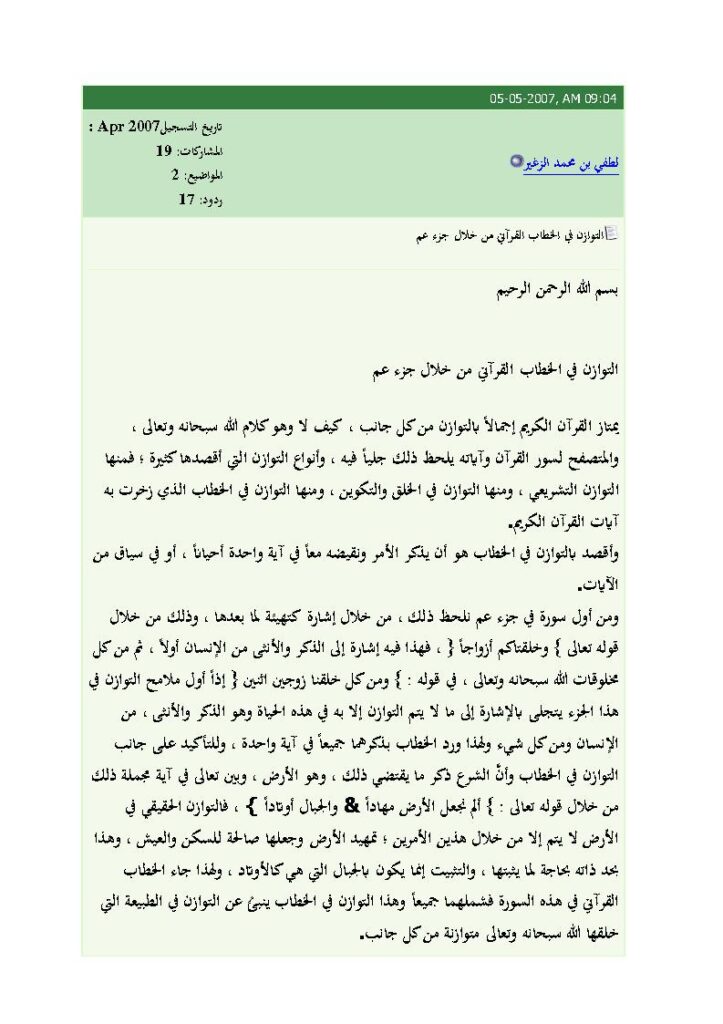 05-05-2007, AM 09:04
لطفي بن محمد الزغير
تاريخ التسجيل: Apr 2007
المشاركات: 19
المواضيع: 2
ردود: 17
التوازن في الخطاب القرآني من خلال جزء عم
بسم الله الرحمن الرحيم
التوازن في الخطاب القرآني من خلال جزء عم
يمتاز القرآن الكريم إجمالاً بالتوازن من كل جانب ، كيف لا وهو كلام الله سبحانه وتعالى ،
والمتصفح لسور القرآن وآياته يلحظ ذلك جلياً فيه ، وأنواع التوازن التي أقصدها كثيرة ؛ فمنها
التوازن التشريعي ، ومنها التوازن في الخلق والتكوين ، ومنها التوازن في الخطاب الذي زخرت به
آيات القرآن الكريم.
وأقصد بالتوازن في الخطاب هو أن يذكر الأمر ونقيضه معاً في آية واحدة أحياناً ، أو في سياق من
الآيات.
ومن أول سورة في جزء عم نلحظ ذلك ، من خلال إشارة كتهيئة لما بعدها ، وذلك من خلال
قوله تعالى } وخلقتاكم أزواجاً { ، فهذا فيه إشارة إلى الذكر والأنثى من الإنسان أولاً ، ثم من كل
مخلوقات الله سبحانه وتعالى ، في قوله : } ومن كل خلقنا زوجين اثنين { إذاً أول ملامح التوازن في
هذا الجزء يتجلى بالإشارة إلى ما لا يتم التوازن إلا به في هذه الحياة وهو الذكر والأنثى ، من
الإنسان ومن كل شيء ولهذا ورد الخطاب بذكرهما جميعاً في آية واحدة ، وللتأكيد على جانب
التوازن في الخطاب وأنَّ الشرع ذكر ما يقتضي ذلك ، وهو الأرض ، وبين تعالى في آية مجملة ذلك
من خلال قوله تعالى : } ألم نجعل الأرض مهاداً & والجبال أوتاداً { ، فالتوازن الحقيقي في
الأرض لا يتم إلا من خلال هذين الأمرين ؛ تمهيد الأرض وجعلها صالحة للسكن والعيش ، وهذا
بحد ذاته بحاجة لما يثبتها ، والتثبيت إنما يكون بالجبال التي هي كالأوتاد ، ولهذا جاء الخطاب
القرآني في هذه السورة فشملهما جميعاً وهذا التوازن في الخطاب ينبئ عن التوازن في الطبيعة التي
خلقها الله سبحانه وتعالى متوازنة من كل جانب.